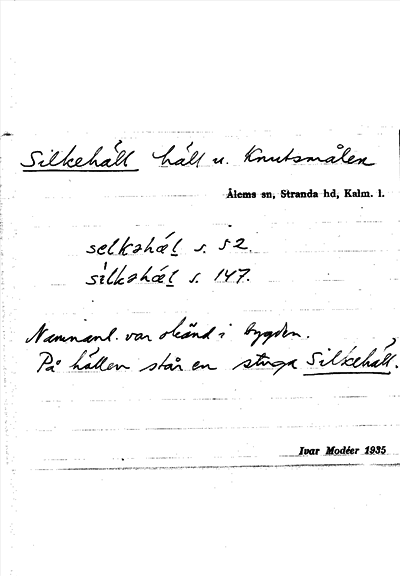 Silkehäll häll u. Knutsmålen
Ålems sn, Stranda hd, Kalm. l.
selkəhæl s. 52.
silkəhæl s. 147.
Namnanl. var okänd i bygden.
På hällen står en stuga Silkehäll.
Ivar Modéer 1935